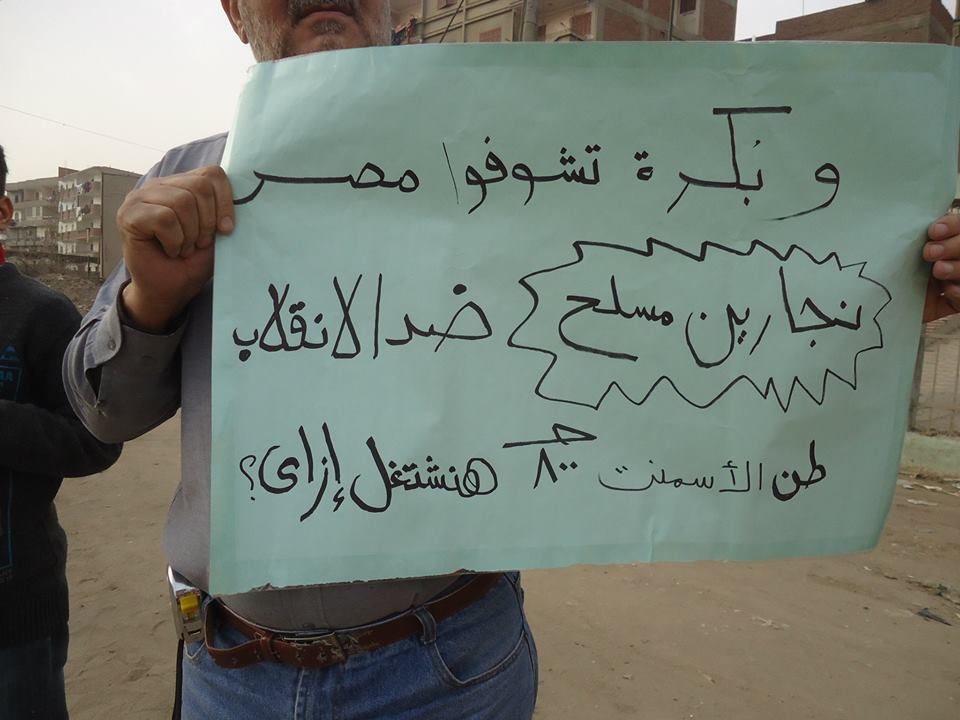 و بُكرة تشوفوا مصر
نجارين مسلح ضد الانقلاب
طن الأسمنت ٨٠٠ جـ هنشتغل إزاى؟